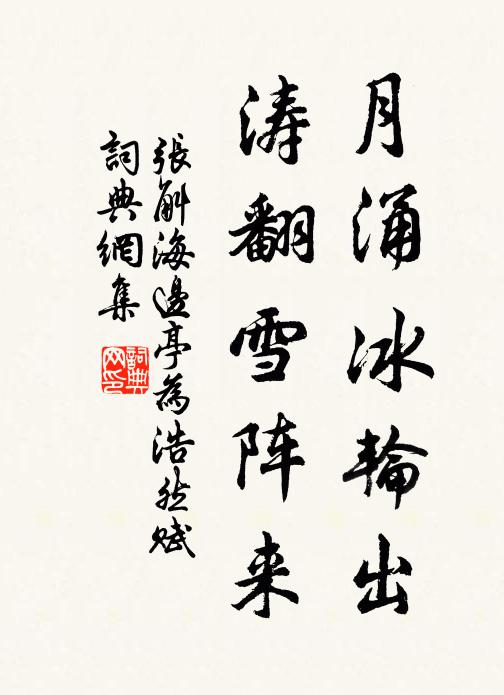 月涌冰輪出
涛翻雪阵来
張斛海邊亭為浩然賦
詞典網集
詞典網印